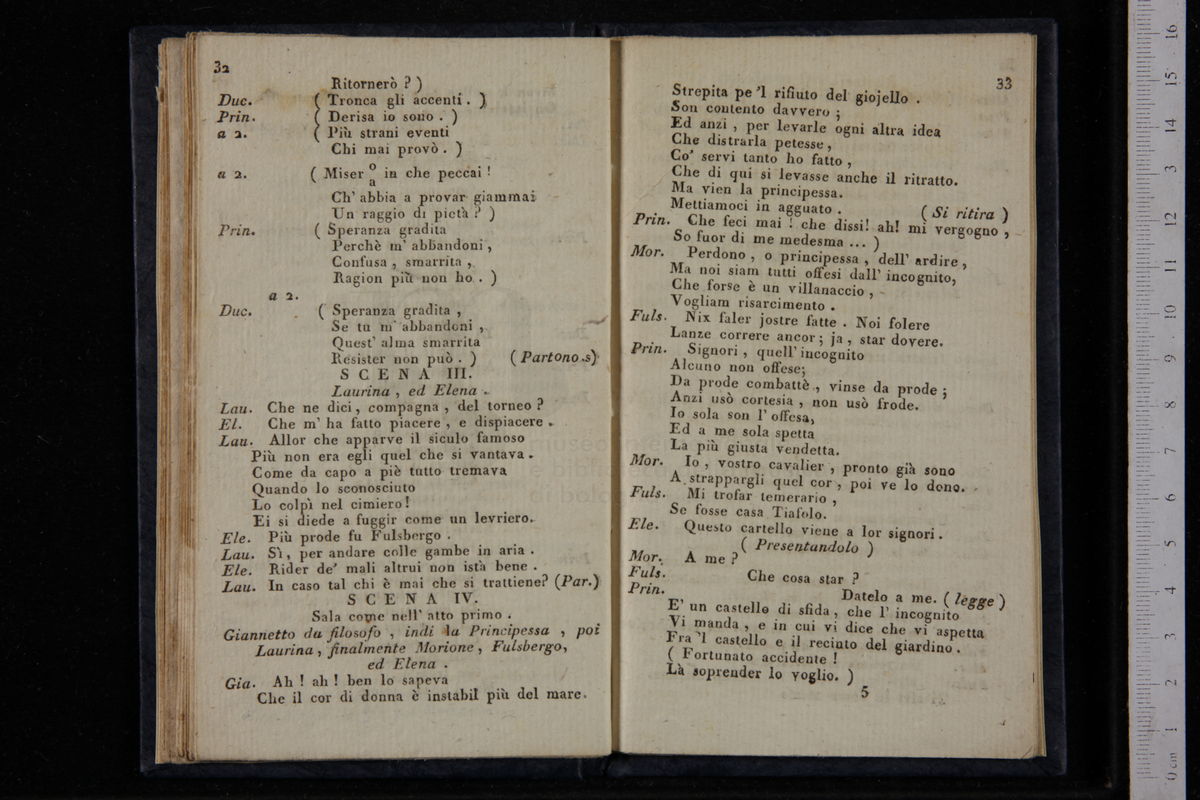 32
Ritornerò ? )
Duc. ( Tronca gli accenti . )
Prin. ( Derisa io sono . )
a 2. ( Più strani eventi
Chi mai provò . )
a 2. ( Miser o/a in che peccai !
Ch' abbia a provar giammai
Un raggio di pietà ? )
Prin. ( Speranza gradita
Perchè m' abbandoni ,
Confusa , smarrita ,
Ragion più non ho . )
a 2.
Duc. ( Speranza gradita ,
Se tu m' abbandoni ,
Quest' alma smarrita
Resister non può . ) ( Partono .s)
SCENA III.
Laurina , ed Elena .
Lau. Che ne dici , compagna , del torneo ?
El. Che m' ha fatto piacere , e dispiacere .
Lau. Allor che apparve il siculo famoso
Più non era egli quel che si vantava .
Come da capo a piè tutto tremava
Quando lo sconosciuto
Lo colpì nel cimiero !
Ei si diede a fuggir come un levriero.
Ele. Più prode fu Fulsbergo .
Lau. Sì , per andare colle gambe in aria .
Ele. Rider de' mali altrui non istà bene .
Lau. In caso tal chi è mai che si trattiene? (Par.)
SCENA IV.
Sala come nell' atto primo .
Giannetto da filosofo , indi la Principessa , poi
Laurina , finalmente Morione , Fulsbergo,
ed Elena .
Gia. Ah ! ah ! ben lo sapeva
Che il cor di donna è instabil più del mare.
33
Strepita pe 'l rifiuto del giojello .
Son contento davvero ;
Ed anzi , per levarle ogni altra idea
Che distrarla petesse ,
Co' servi tanto ho fatto ,
Che di qui si levasse anche il ritratto.
Ma vien la principessa.
Mettiamoci in agguato . ( Si ritira )
Prin. Che feci mai ! che dissi! ah! mi vergogno ,
So fuor di me medesma ... )
Mor. Perdono , o principessa , dell' ardire ,
Ma noi siam tutti offesi dall' incognito,
Che forse è un villanaccio ,
Vogliam risarcimento .
Fuls. Nix faler jostre fatte . Noi folere
Lanze correre ancor ; ja , star dovere.
Prin. Signori , quell' incognito
Alcuno non offese;
Da prode combattè , vinse da prode ;
Anzi usò cortesia , non usò frode.
Io sola son l' offesa,
Ed a me sola spetta
La più giusta vendetta.
Mor. Io , vostro cavalier , pronto già sono
A strappargli quel cor , poi ve lo dono.
Fuls. Mi trofar temerario ,
Se fosse casa Tiafolo.
Ele. Questo cartello viene a lor signori .
( Presentandolo )
Mor. A me ?
Fuls. Che cosa star ?
Prin. Datelo a me. ( legge )
E' un castello di sfida , che l' incognito
Vi manda , e in cui vi dice che vi aspetta
Fra 'l castello e il recinto del giardino .
( Fortunato accidente !
Là soprender lo voglio. )
5